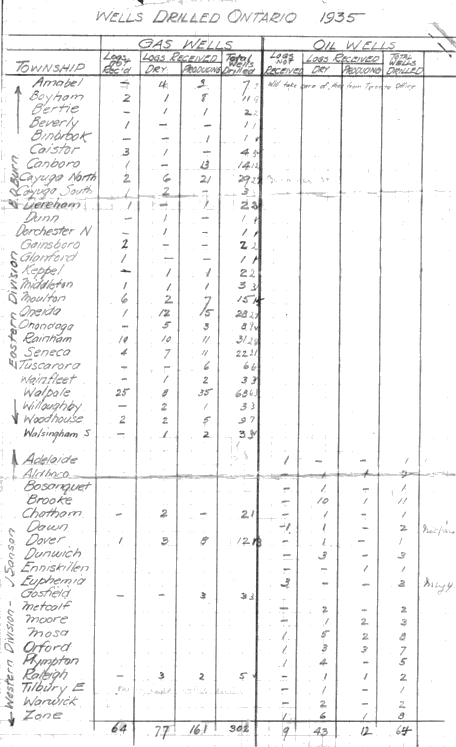 WELLS DRILLED ONTARIO 1935
GAS WELLS OIL WELLS
TOWNSHIP Logs Not Rec'd LOGS RECEIVED DRY PRODUCING Total Wells Drilled LOGS NOT RECEIVED LOGS RECEIVED DRY PRODUCING TOTAL WELLS DRILLED
Eastern Division
Amabel - 4 7
Bayham 2 1 8 11
Bertie - 1 1 2
Beverly 1 - - 1
Binbrook - - 1 1
Caistor 3 1 - 4
Canboro 1 - 13 14
Cayuga North 2 6 21 29
Cayuga South 1 2 - 3
Dereham 1 - 1 2
Dunn - 1 - 1
Dorchester N - 1 - 1
Gainsboro 2 - - 2
Glanford 1 - - 1
Keppel - 1 1 2
Middleton 1 1 1 3
Moulton 6 2 7 15
Oneida 1 12 15 28
Onondaga - 5 3 8
Rainham 10 10 11 31
Seneca 4 7 11 22
Tuscarora - - 6 6
Wainfleet - 1 2 3
Walpole 25 8 35 68
Willoughby - 2 1 3
Woodhouse 2 2 5 9
Walsingham S - 1 2 3
Western Division - J Sanson
Adelaide 1 - - 1
Aldboro
Bosanquet - 1 - 1
Brooke - 10 1 11
Chatham - 2 - 2 - 1 - 1
Dawn 1 1 - 2
Dover 1 3 8 12 - 1 - 1
Dunwich - 3 - 3
Enniskillen - - 1 1
Euphemia - -
Gosfield - - 3 3
Metcalf - 2 - 2
Moore - 1 2 3
Mosa 1 5 2 8
Orford 1 3 3 7
Plympton 1 4 - 5
Raleigh - 3 2 5 - 1 1 2
Tilbury E - 1 - 1
Warwick - 2 - 2
Zone 1 6 1 8
64 77 161 302 9 43 12 64